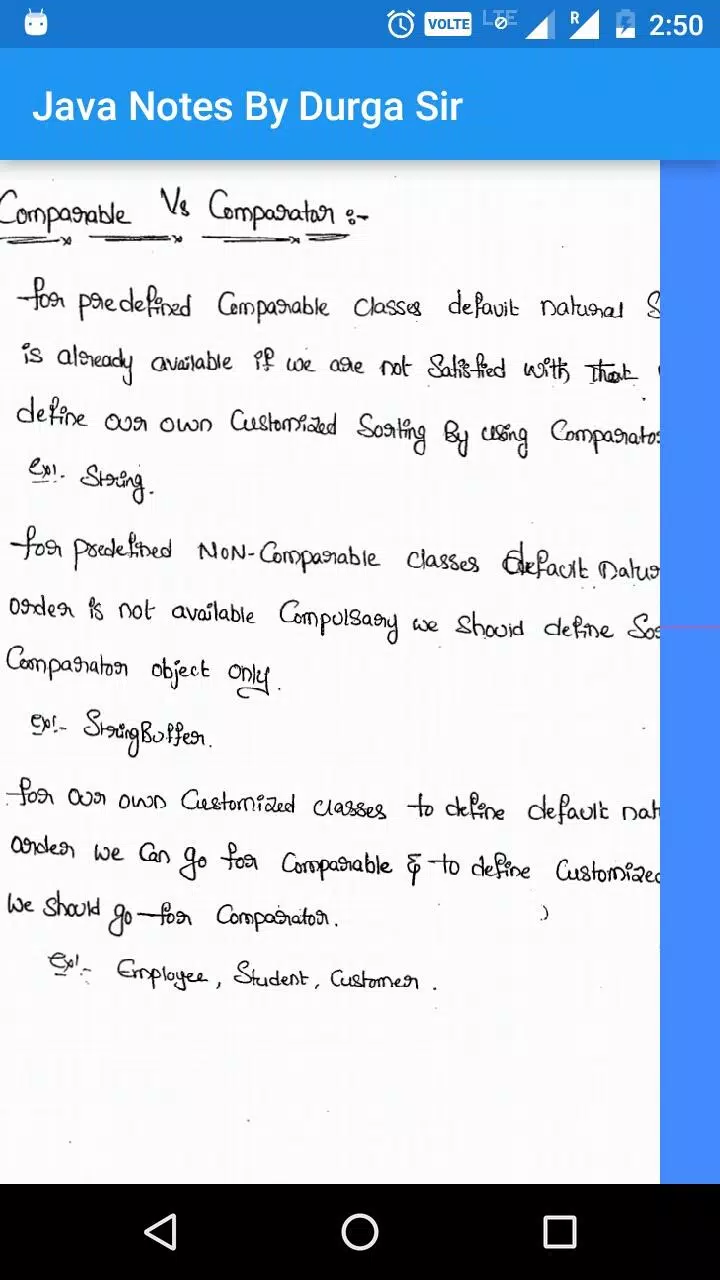 VOLTE LTE R 2:50
Java Notes By Durga Sir
Comparable Vs Comparator :-
for predefined Comparable classes default natural S
is already available if we are not Satisfied with that
define our own Customized Sorting By using Comparator
Ex:- String.
for predefined NON-Comparable classes default natur
order is not available Compulsary we should define Sor
Comparator object only.
Ex:- StringBuffer.
for our own Customized classes to define default nat
order we can go for Comparable & to define Customized
We should go for Comparator.
Ex:- Employee, Student, Customer.